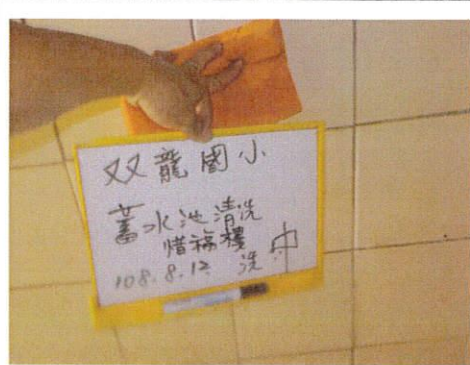 双龍國小
蓄水池清洗
惜福樓
108.8.12 洗中